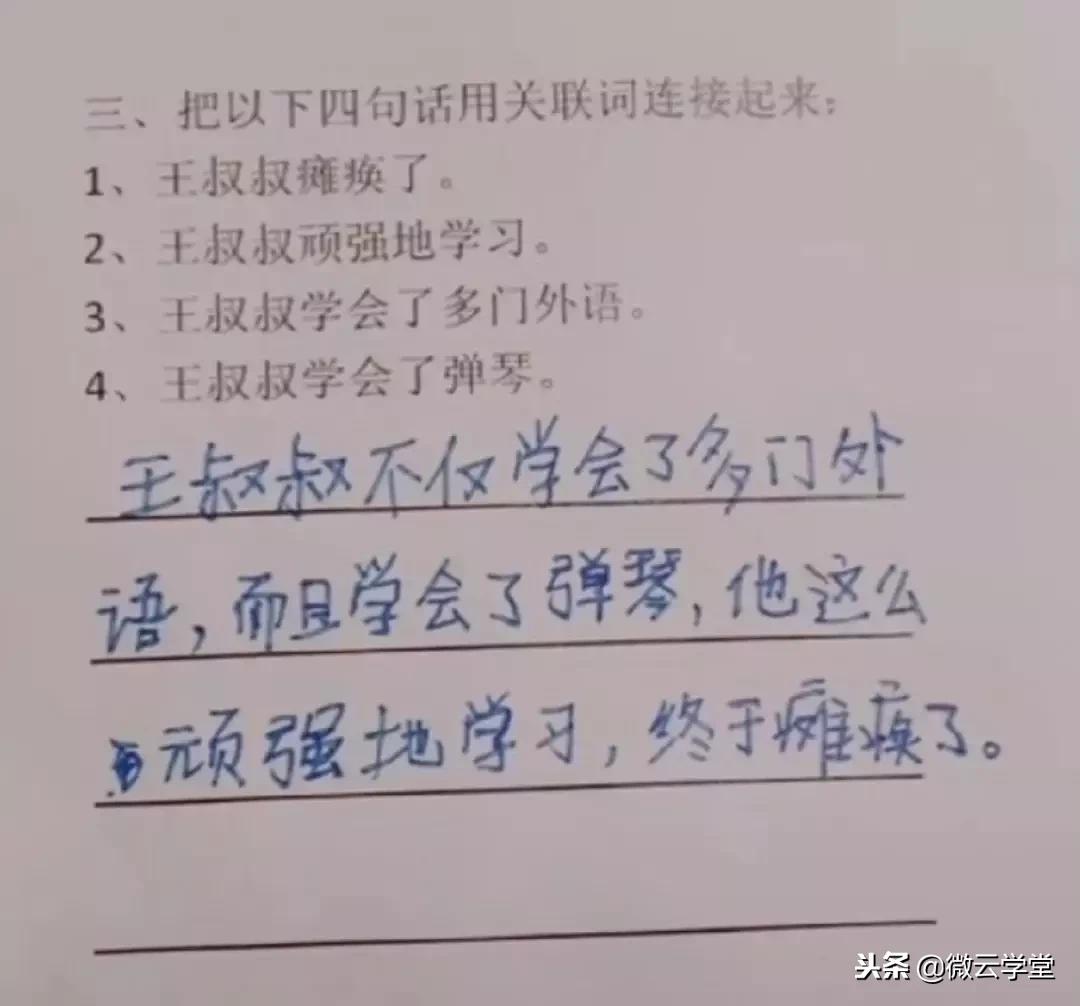 三、把以下四句话用关联词连接起来：
1、王叔叔瘫痪了。
2、王叔叔顽强地学习。
3、王叔叔学会了多门外语。
4、王叔叔学会了弹琴。
王叔叔不仅学会了多门外
语，而且学会了弹琴，他这么
顽强地学习，终于瘫痪了。
头条 @微云学堂